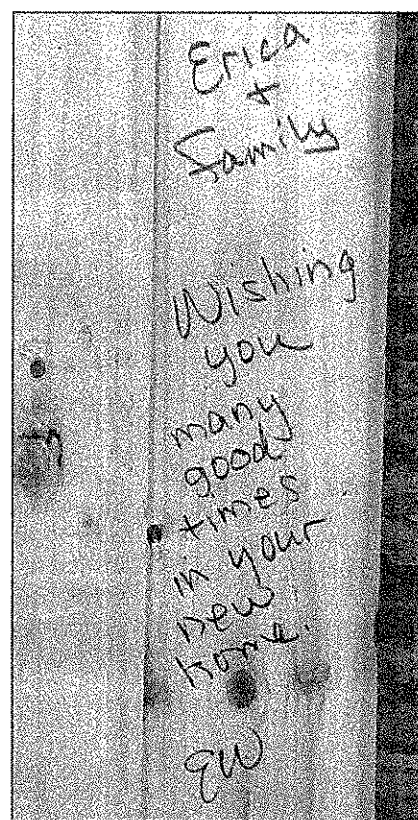 Erica
+
Family
Wishing
you
many
good
times
in your
new
home.
EW